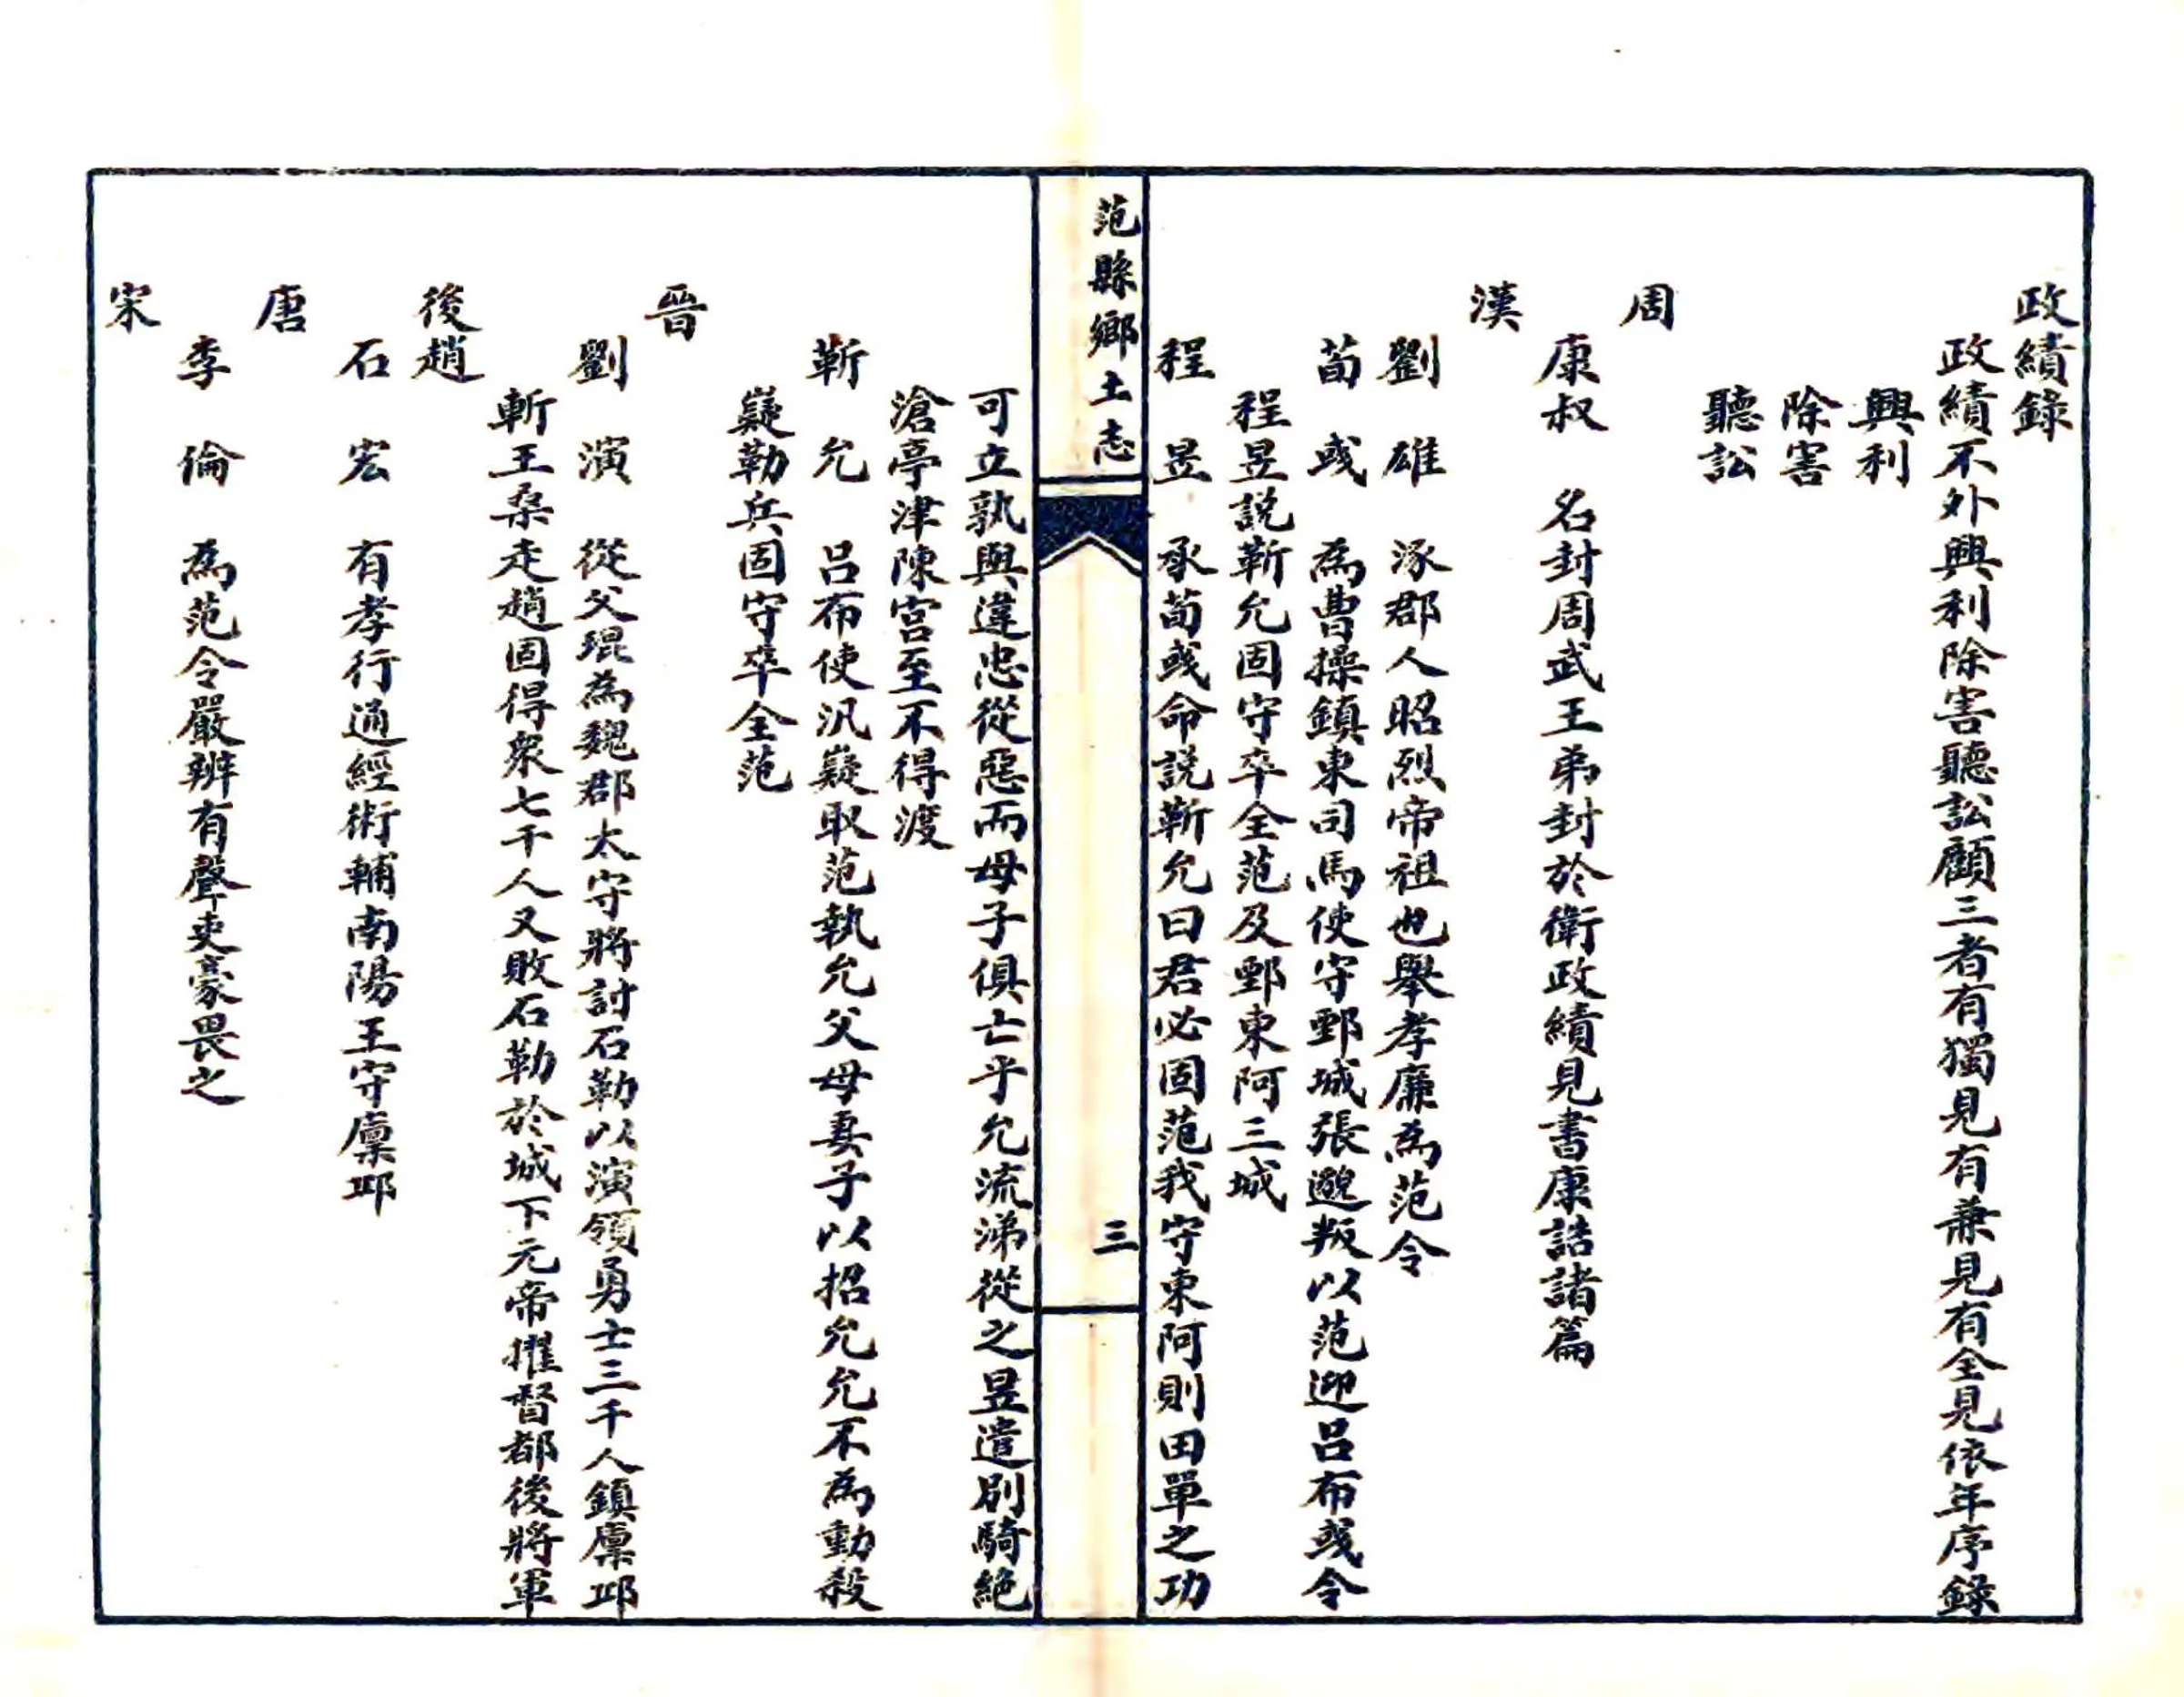 政績錄
政績不外興利除害聽訟顧三者有獨見有兼見有全見依年序録
興利
除害
聽訟
周
康叔　名封周武王弟封於衛政績見書康誥諸篇
漢
劉　雄　涿郡人昭烈帝祖也舉孝廉為范令
荀　彧　為曹操鎮東司馬使守鄄城張邈叛以范迎呂布彧令
程昱説靳允固守卒全范及鄄東阿三城
程　昱　承荀彧命説靳允曰君必固范我守東阿則田單之功
范縣鄉土志
三
可立孰與違忠從惡而母子俱亡乎允流涕從之昱遣别騎絶
滄亭津陳宮至不得渡
靳　允　呂布使汎嶷取范執允父母妻子以招允允不為動殺
嶷勒兵固守卒全范
晉
劉　演　從父琨為魏郡太守將討石勒以演領勇士三千人鎮廩邱
斬王桑走趙固得衆七千人又敗石勒於城下元帝擢督都後將軍
後趙
石　宏　有孝行通經術輔南陽王守廩邱
唐
李　倫　為范令嚴辨有聲吏豪畏之
宋